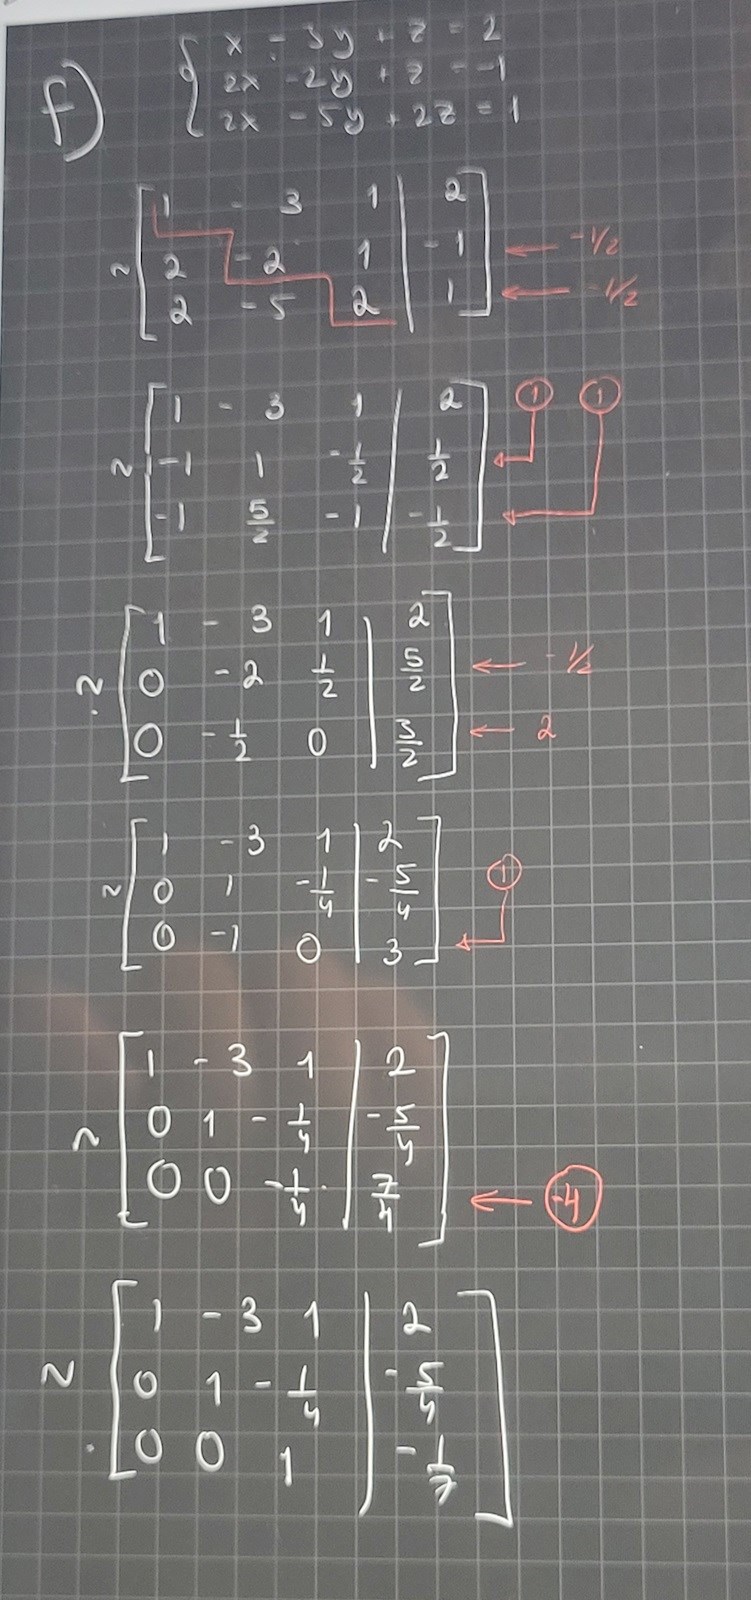 f)
x - 3y + z = 2
2x - 2y + z = -1
2x - 5y + 2z = 1
1 - 3 1 | 2
~ 2 - 2 1 | - 1 ← -1/2
2 - 5 2 | 1 ← -1/2
1 - 3 1 | 2 ① ①
~ -1 1 -1/2 | 1/2
-1 5/2 - 1 | -1/2
1 - 3 1 | 2
~ 0 - 2 1/2 | 5/2 ← -1/2
0 -1/2 0 | 3/2 ← 2
1 -3 1 | 2
~ 0 1 -1/4 | -5/4 ①
0 -1 0 | 3
1 - 3 1 | 2
~ 0 1 - 1/4 | -5/4
0 0 -1/4 | 7/4 ← -4
1 - 3 1 | 2
~ 0 1 - 1/4 | -5/4
0 0 1 | - 1/7